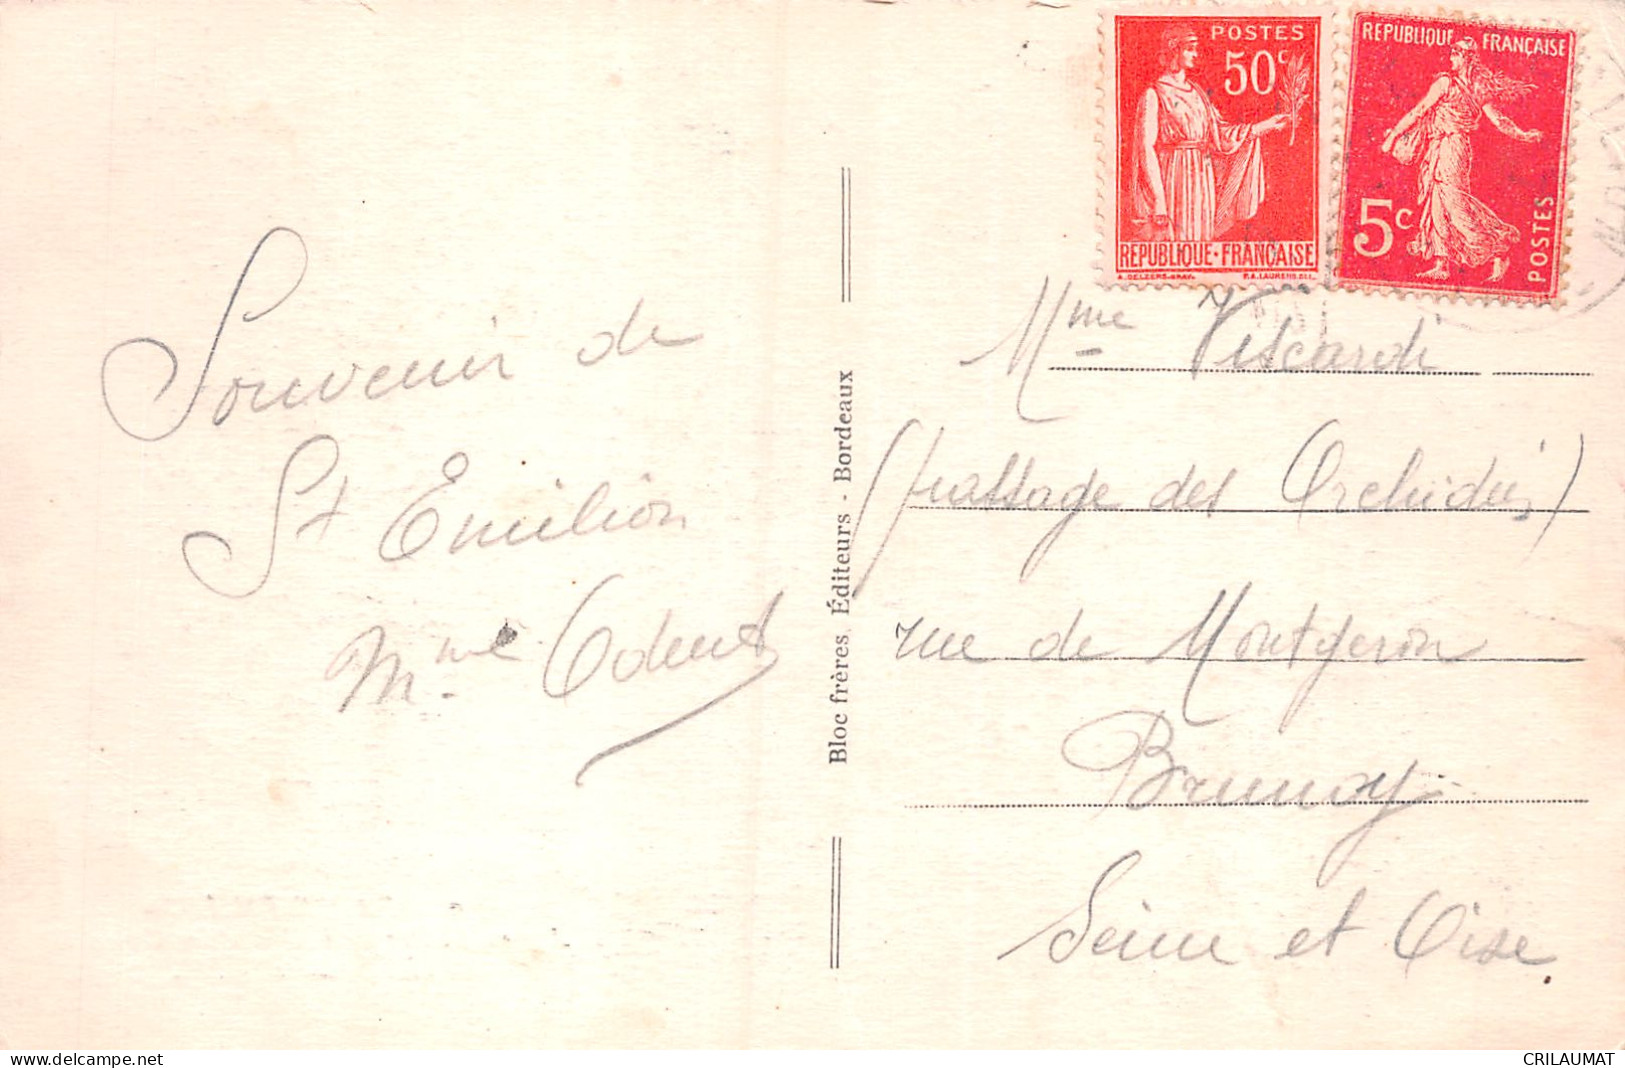 Souvenir de
St Emilion
Mme Odent
Bloc frères, Éditeurs - Bordeaux
POSTES
50c
REPUBLIQUE·FRANÇAISE
REPUBLIQUE FRANÇAISE
5c
POSTES
Mme Viscardi
(passage des Orchidées)
rue de Montgeron
Brunoy
Seine et Oise.
www.delcampe.net
CRILAUMAT